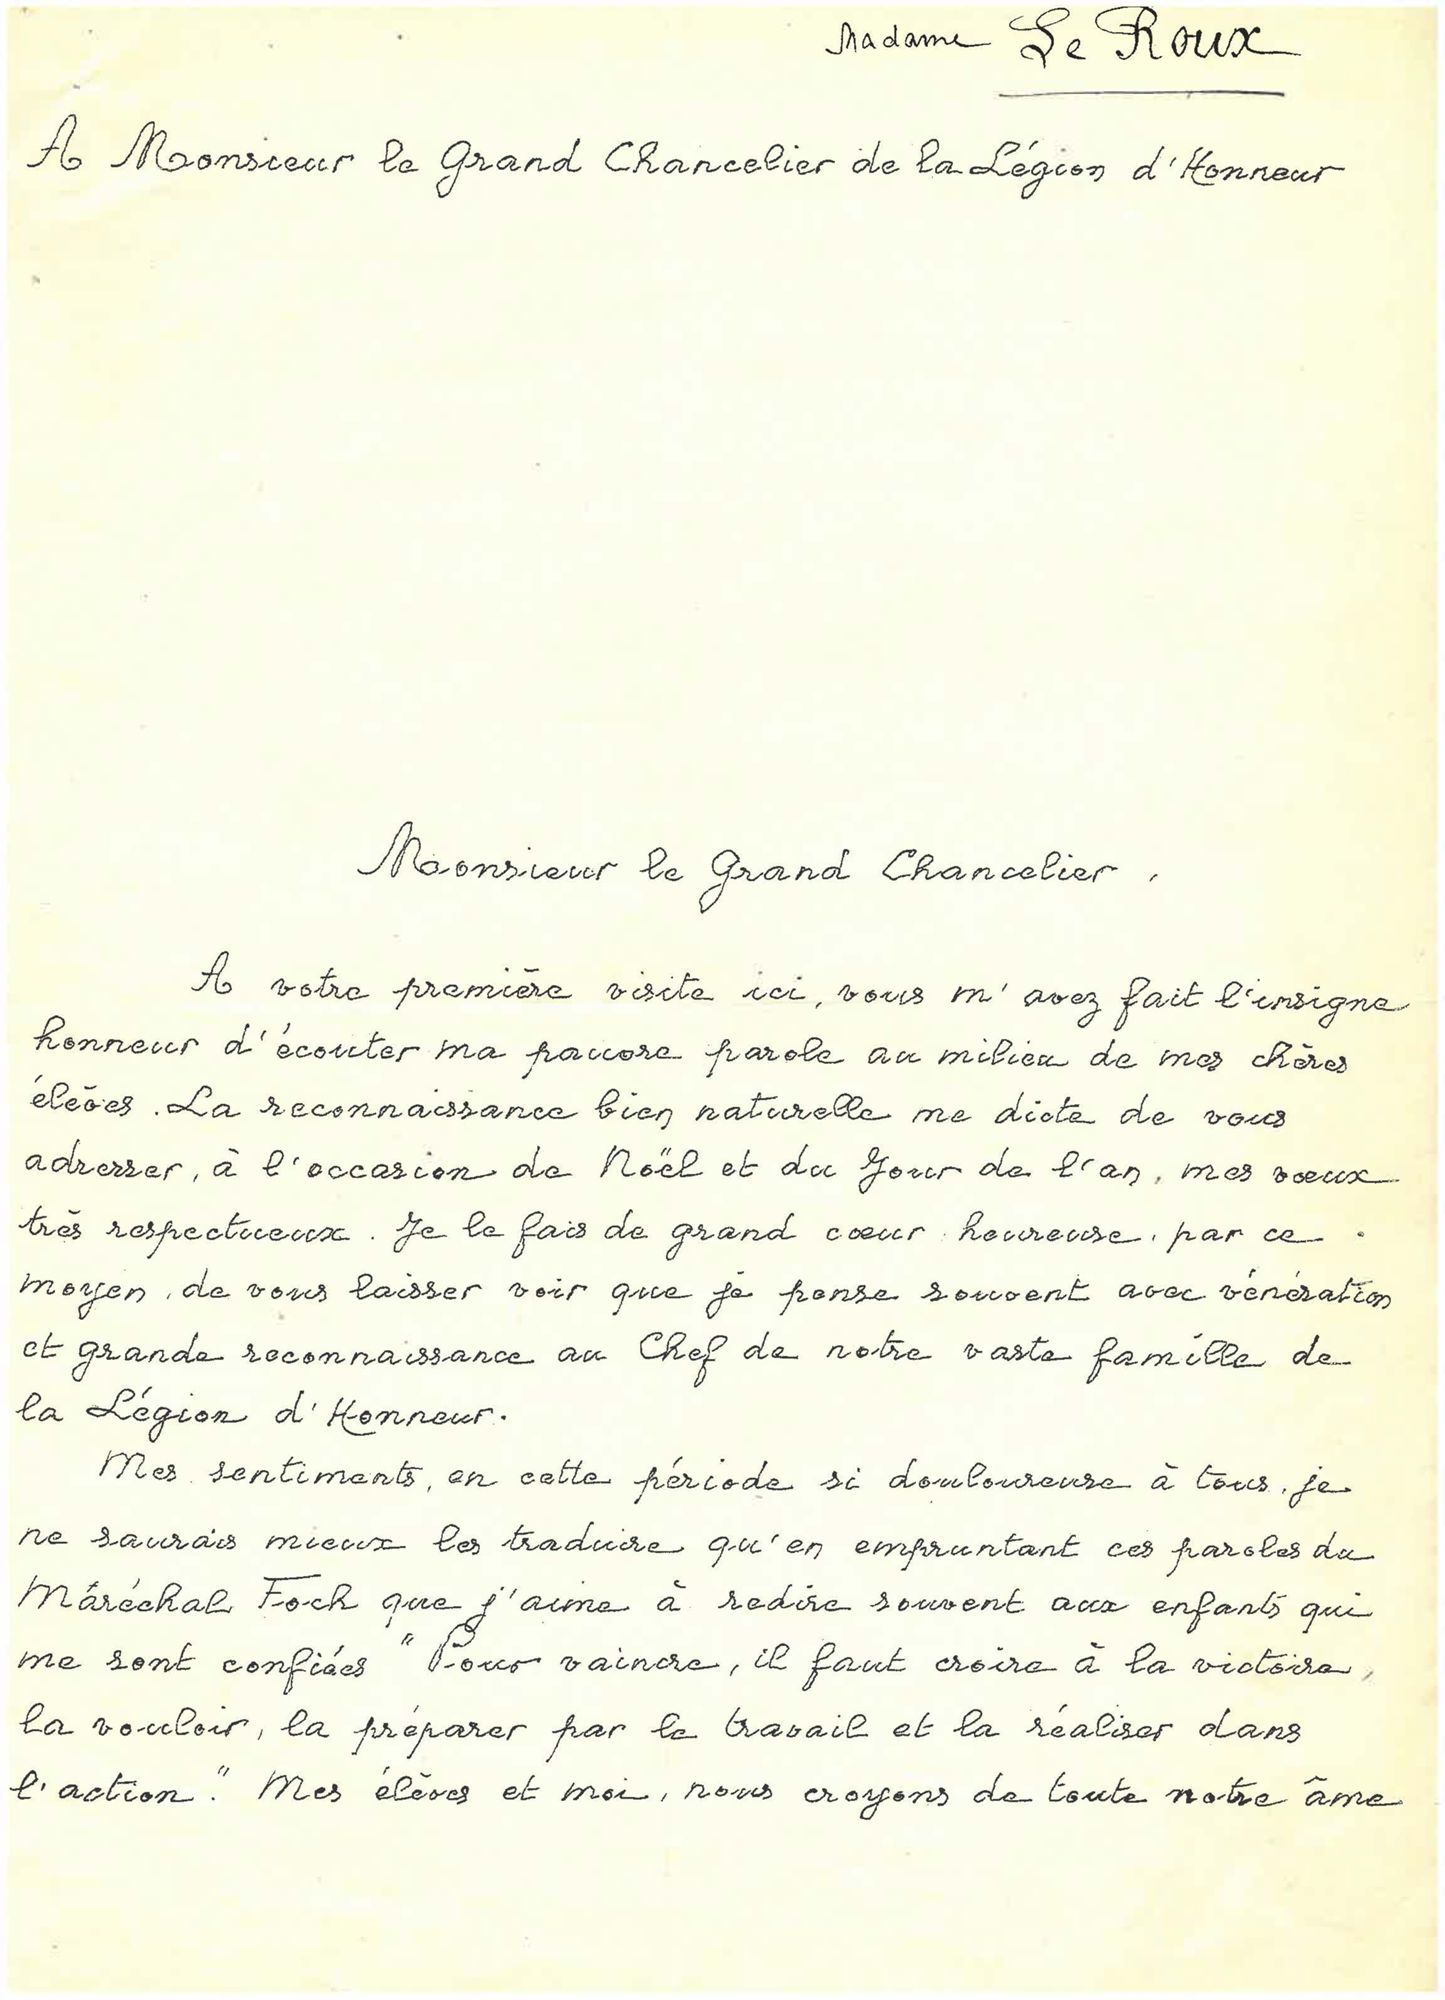 Madame Le Roux
A Monsieur le Grand Chancelier de la Légion d'Honneur
Monsieur le Grand Chancelier,
A votre première visite ici, vous m'avez fait l'insigne
honneur d'écouter ma pauvre parole au milieu de mes chères
élèves. La reconnaissance bien naturelle me dicte de vous
adresser, à l'occasion de Noël et du Jour de l'an, mes vœux
très respectueux. Je le fais de grand cœur heureuse, par ce
moyen, de vous laisser voir que je pense souvent avec vénération
et grande reconnaissance au Chef de notre vaste famille de
la Légion d'Honneur.
Mes sentiments, en cette période si douloureuse à tous, je
ne saurais mieux les traduire qu'en empruntant ces paroles du
Maréchal Foch que j'aime à redire souvent aux enfants qui
me sont confiées "Pour vaincre, il faut croire à la victoire,
la vouloir, la préparer par le travail et la réaliser dans
l'action." Mes élèves et moi, nous croyons de toute notre âme